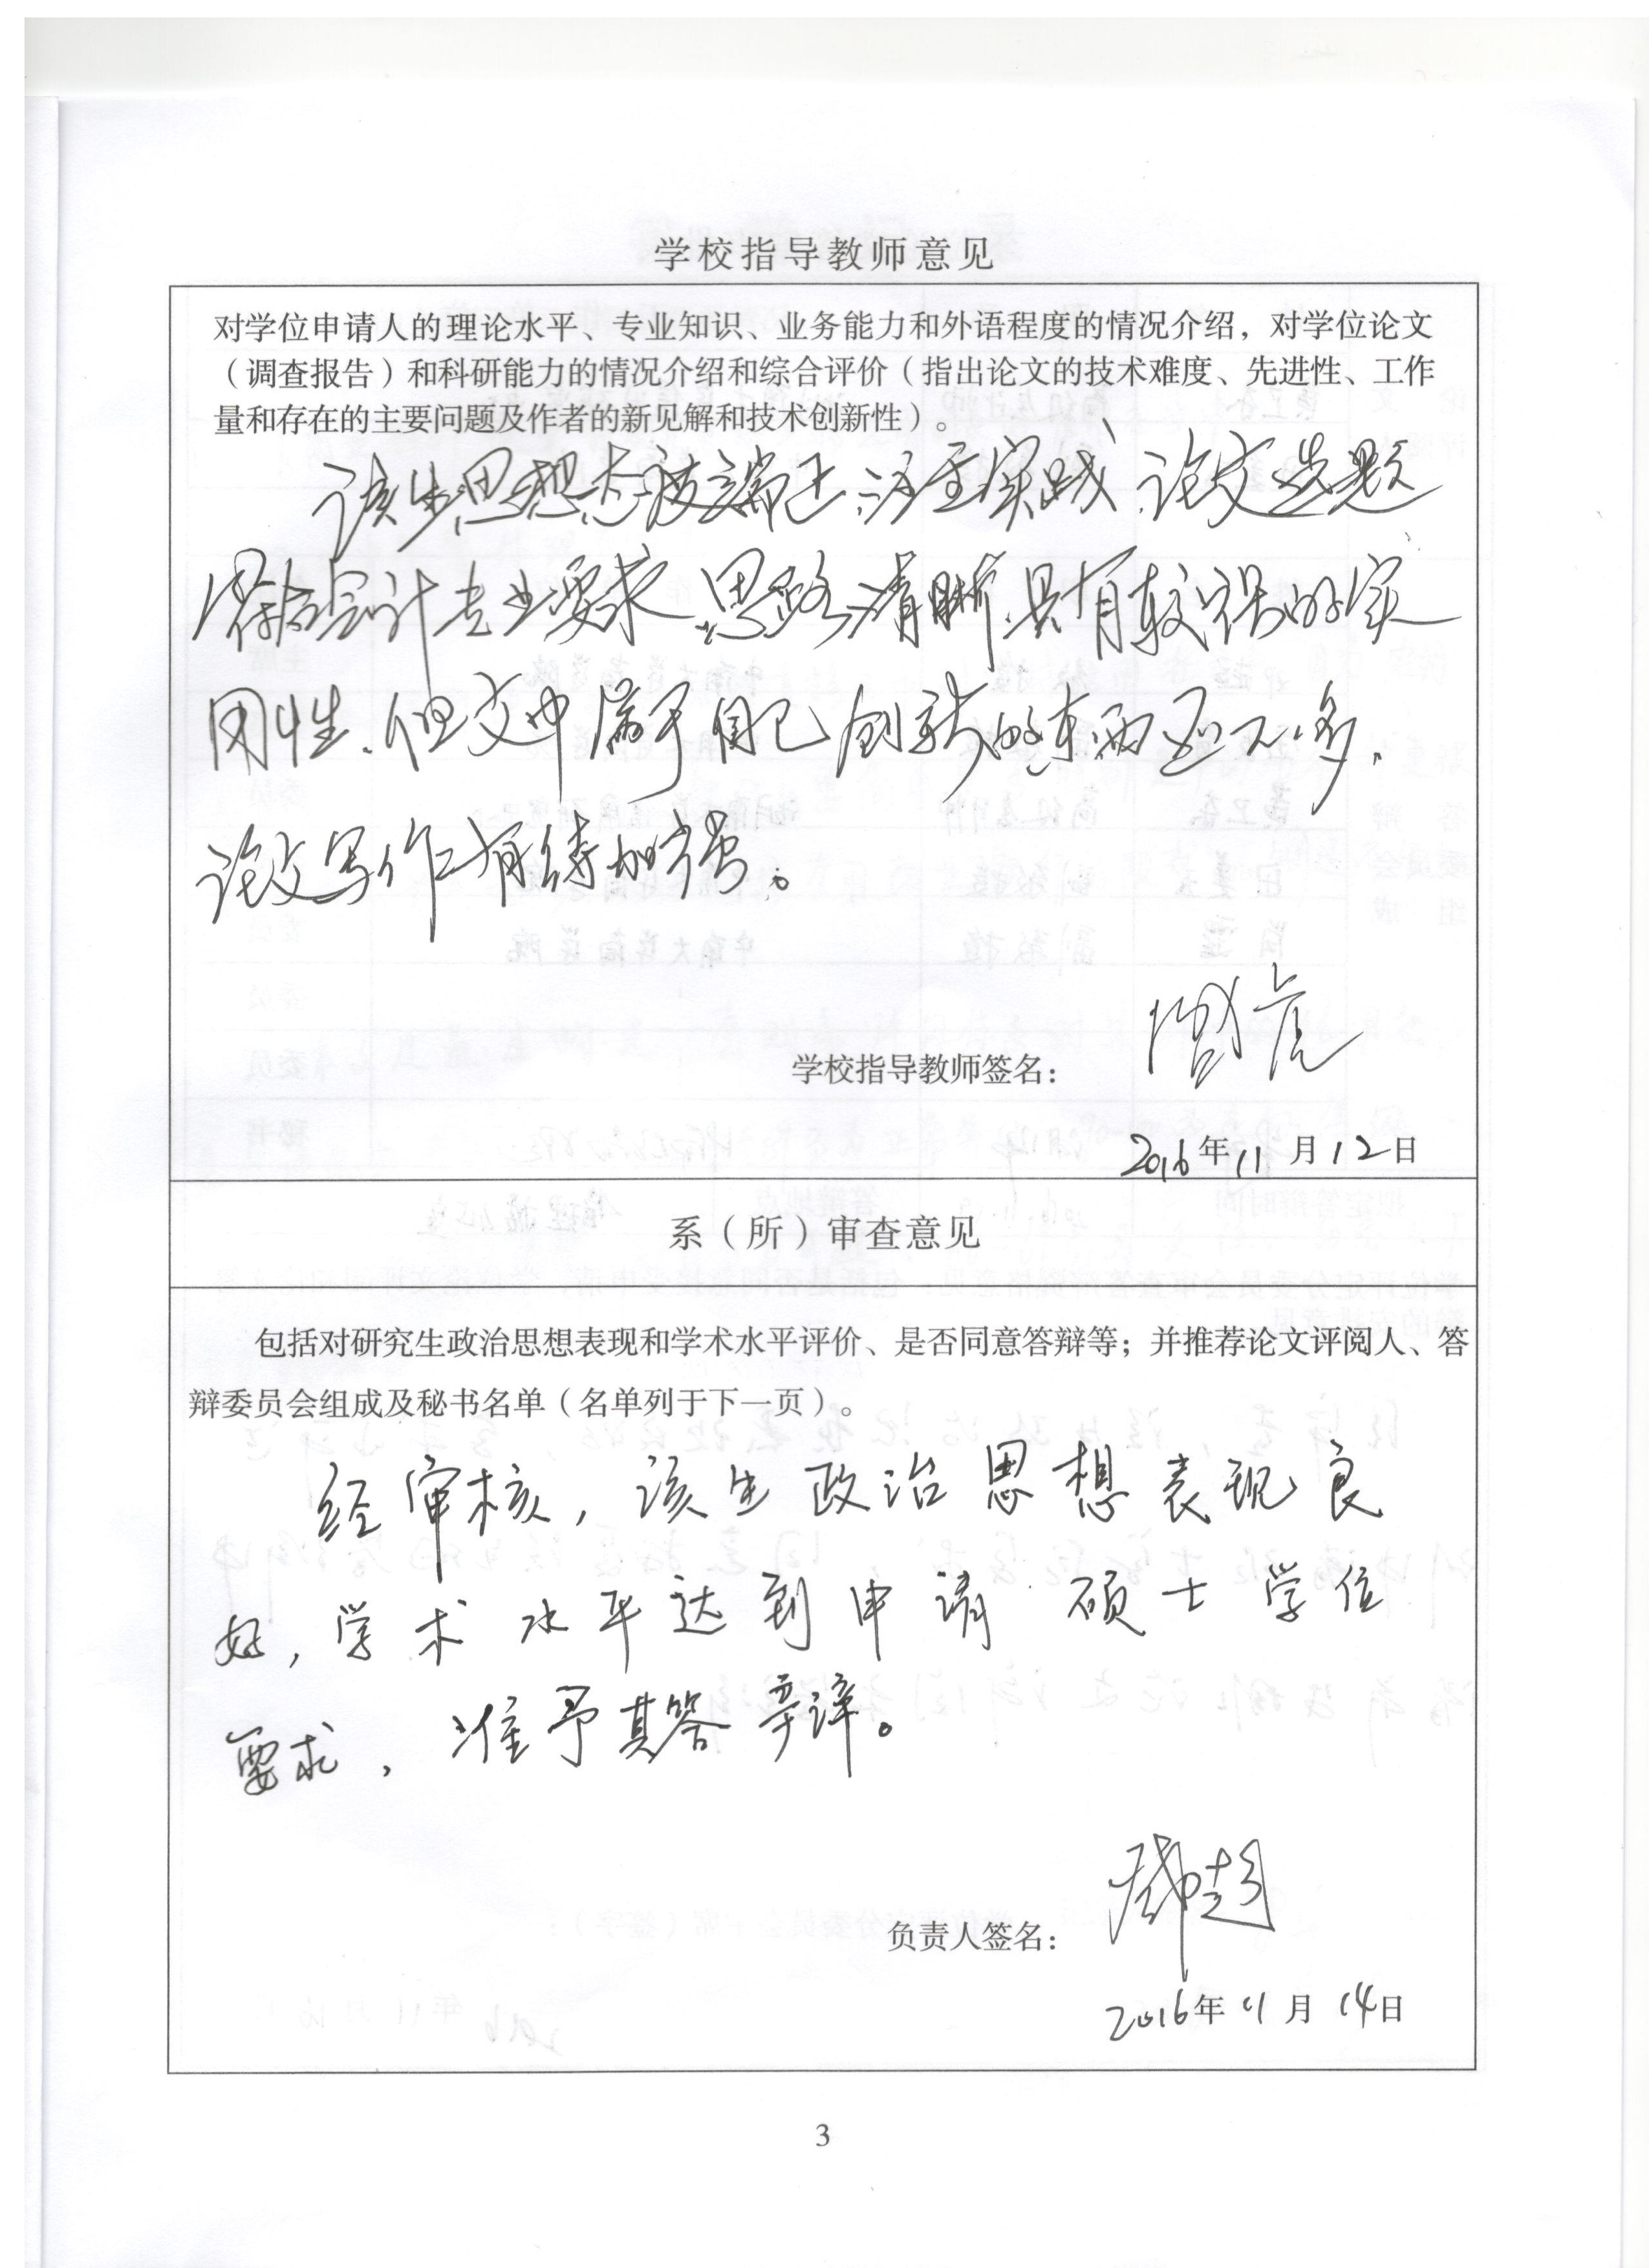 学校指导教师意见
对学位申请人的理论水平、专业知识、业务能力和外语程度的情况介绍，对学位论文
（调查报告）和科研能力的情况介绍和综合评价（指出论文的技术难度、先进性、工作
量和存在的主要问题及作者的新见解和技术创新性）。
该生思想态度端正、注重实践、论文选题
符合会计专业要求、思路清晰、具有较强的实
用性、但文中属于自己创新的东西还不多、
论文写作有待加强。
学校指导教师签名：
2016年11月12日
系（所）审查意见
包括对研究生政治思想表现和学术水平评价、是否同意答辩等；并推荐论文评阅人、答
辩委员会组成及秘书名单（名单列于下一页）。
经审核，该生政治思想表现良
好，学术水平达到申请硕士学位
要求，准予其答辩。
负责人签名：
2016年11月14日
3